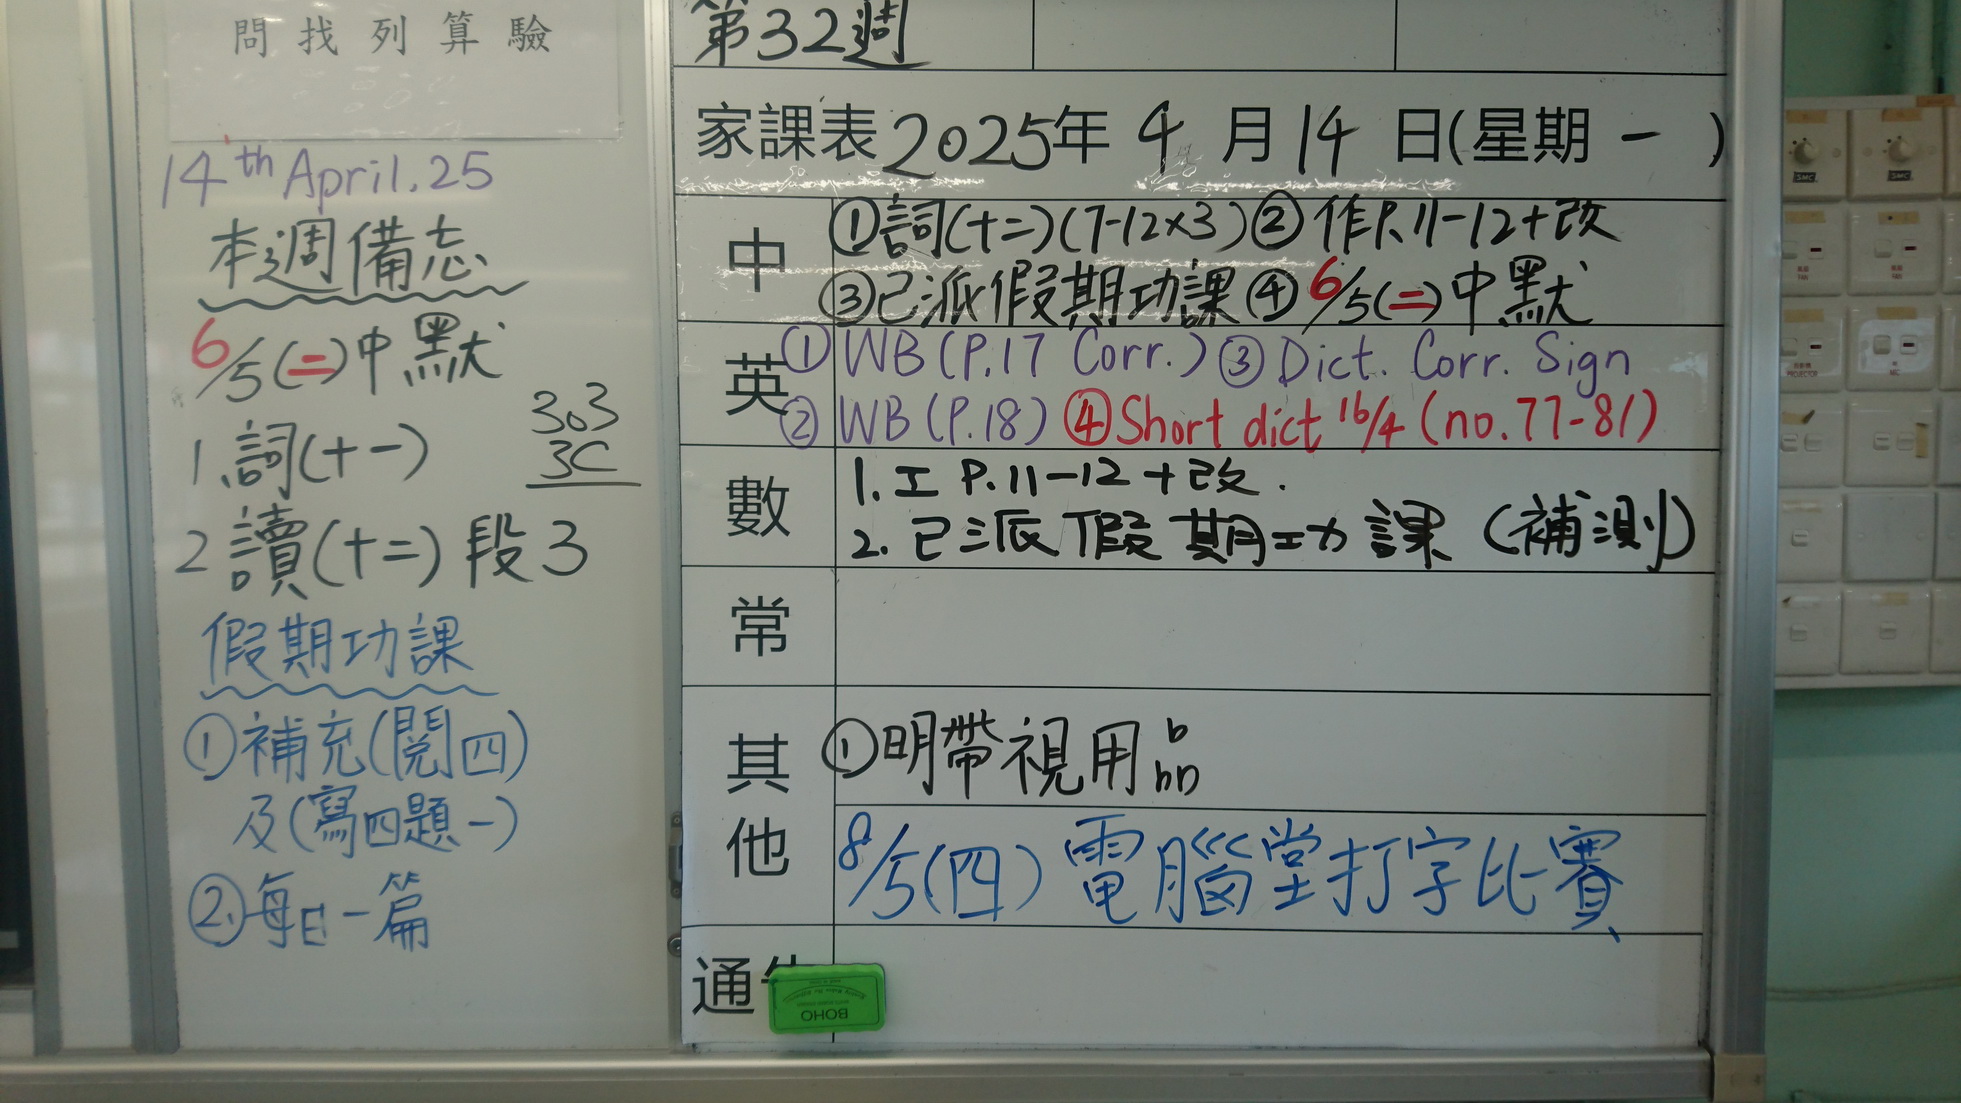 問找列算驗
14th April. 25
本週備忘
6/5(二)中默
1.詞(十一)
303
3C
2 讀(十二)段3
假期功課
①補充(閱四)
及(寫四題一)
②每日一篇
第32週
家課表2025年4月14日(星期一)
中
①詞(十二)(7-12×3)②作P.11-12+改
③已派假期功課④6/5(二)中默
英
①WB(P.17 Corr.)③Dict. Corr. Sign
②WB(P.18)④Short dict 16/4 (no.77-81)
數
1.工 P.11-12+改.
2.已派假期功課(補測)
常
其他
①明帶視用品
8/5(四)電腦堂打字比賽
通
BOHO